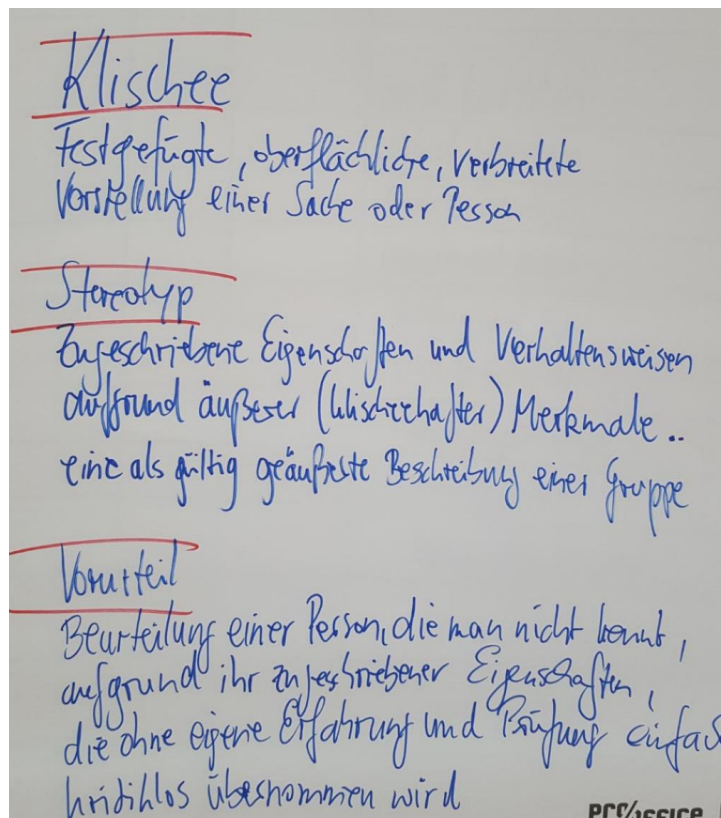 Klischee
Festgefügte, oberflächliche, verbreitete
Vorstellung einer Sache oder Person
Stereotyp
Zugeschriebene Eigenschaften und Verhaltensweisen
aufgrund äußerer (klischeehafter) Merkmale..
eine als gültig geäußerte Beschreibung einer Gruppe
Vorurteil
Beurteilung einer Person, die man nicht kennt,
aufgrund ihr zugeschriebener Eigenschaften,
die ohne eigene Erfahrung und Prüfung einfac
kritiklos übernommen wird